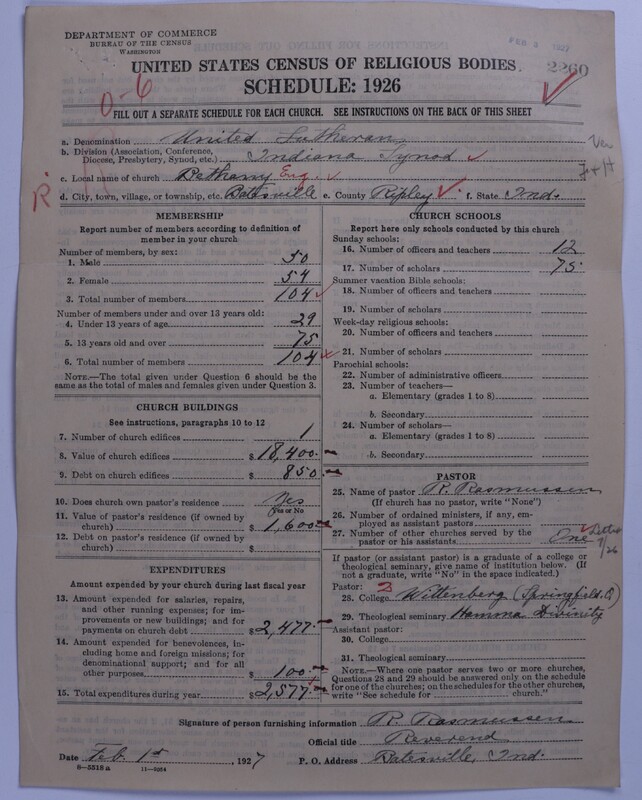 DEPARTMENT OF COMMERCE
BUREAU OF THE CENSUS
WASHINGTON
FEB 3 1927
2260
UNITED STATES CENSUS OF RELIGIOUS BODIES
SCHEDULE: 1926
0-6
FILL OUT A SEPARATE SCHEDULE FOR EACH CHURCH. SEE INSTRUCTIONS ON THE BACK OF THIS SHEET
a. Denomination United Lutheran
b. Division (Association, Conference, Diocese, Presbytery, Synod, etc.) Indiana Synod
c. Local name of church Bethany Eng.
d. City, town, village, or township, etc. Batesville e. County Ripley f. State Ind.
MEMBERSHIP
Report number of members according to definition of member in your church
Number of members, by sex:
1. Male 50
2. Female 54
3. Total number of members 104
Number of members under and over 13 years old:
4. Under 13 years of age 29
5. 13 years old and over 75
6. Total number of members 104
NOTE.—The total given under Question 6 should be the same as the total of males and females given under Question 3.
CHURCH BUILDINGS
See instructions, paragraphs 10 to 12
7. Number of church edifices 1
8. Value of church edifices $18,400.
9. Debt on church edifices $ 850.
10. Does church own pastor's residence Yes
(Yes or No)
11. Value of pastor's residence (if owned by church) $ 1,600
12. Debt on pastor's residence (if owned by church) $
EXPENDITURES
Amount expended by your church during last fiscal year
13. Amount expended for salaries, repairs, and other running expenses; for improvements or new buildings; and for payments on church debt $2,477.
14. Amount expended for benevolences, including home and foreign missions; for denominational support; and for all other purposes $ 100.
15. Total expenditures during year $2,577.
CHURCH SCHOOLS
Report here only schools conducted by this church
Sunday schools:
16. Number of officers and teachers 12
17. Number of scholars 75
Summer vacation Bible schools:
18. Number of officers and teachers
19. Number of scholars
Week-day religious schools:
20. Number of officers and teachers
21. Number of scholars
Parochial schools:
22. Number of administrative officers
23. Number of teachers—
a. Elementary (grades 1 to 8)
b. Secondary
24. Number of scholars—
a. Elementary (grades 1 to 8)
b. Secondary
PASTOR
25. Name of pastor R. Rasmussen
(If church has no pastor, write "None")
26. Number of ordained ministers, if any, employed as assistant pastors
27. Number of other churches served by the pastor or his assistants One
If pastor (or assistant pastor) is a graduate of a college or theological seminary, give name of institution below. (If not a graduate, write "No" in the space indicated.)
Pastor:
28. College Wittenberg (Springfield, O)
29. Theological seminary Hamma Divinity
Assistant pastor:
30. College
31. Theological seminary
NOTE.—Where one pastor serves two or more churches, Questions 28 and 29 should be answered only on the schedule for one of the churches; on the schedules for the other churches, write "See schedule for church."
Signature of person furnishing information R. Rasmussen
Official title Reverend
Date Feb. 1st, 1927 P. O. Address Batesville, Ind.
8—5518 a 11—9254